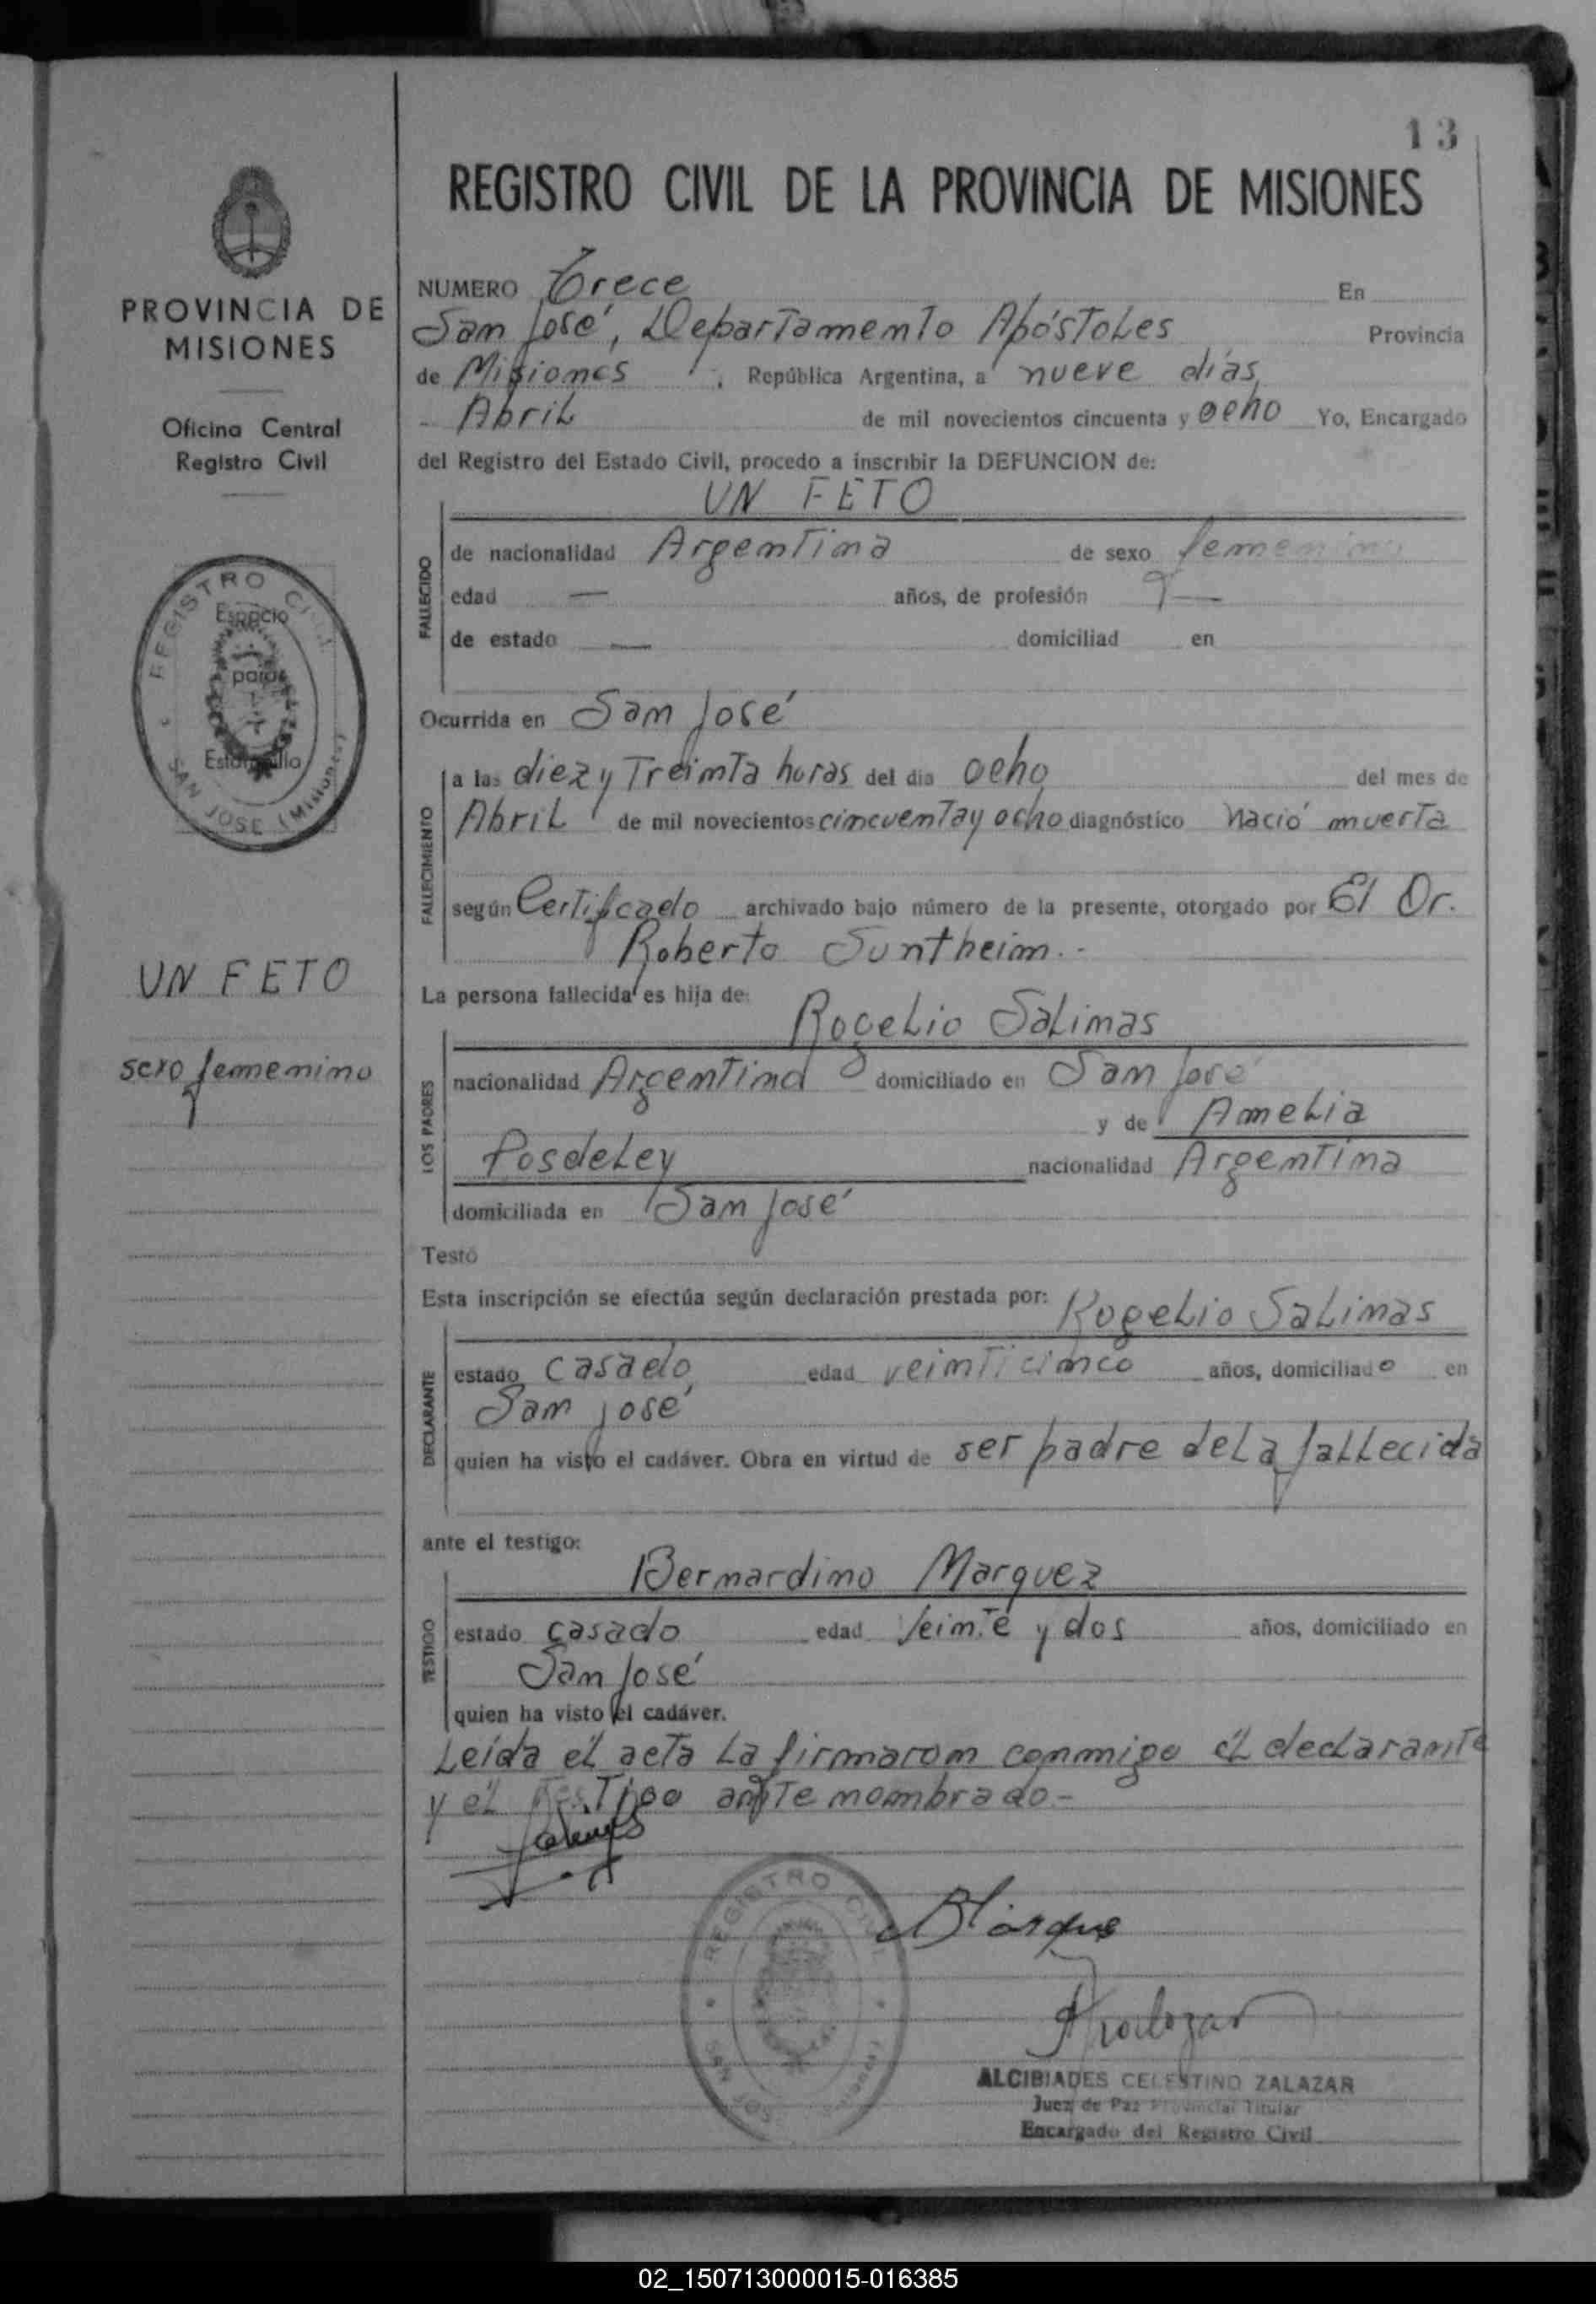 13
REGISTRO CIVIL DE LA PROVINCIA DE MISIONES
PROVINCIA DE
MISIONES
Oficina Central
Registro Civil
REGISTRO CIVIL
Espacio
para
Estampilla
SAN JOSE (Misiones)
UN FETO
sexo femenino
NUMERO Trece En
San José, Departamento Apóstoles Provincia
de Misiones, República Argentina, a nueve días
Abril de mil novecientos cincuenta y ocho Yo, Encargado
del Registro del Estado Civil, procedo a inscribir la DEFUNCION de:
UN FETO
FALLECIDO
de nacionalidad Argentina de sexo femenino
edad — años, de profesión —
de estado — domiciliad en
Ocurrida en San José
FALLECIMIENTO
a las diez y Treinta horas del dia ocho del mes de
Abril de mil novecientos cincuenta y ocho diagnóstico Nació muerta
según Certificado archivado bajo número de la presente, otorgado por El Dr.
Roberto Suntheim.-
La persona fallecida es hija de:
Rogelio Salinas
LOS PADRES
nacionalidad Argentina domiciliado en San José
y de Amelia
Posdeley nacionalidad Argentina
domiciliada en San José
Testó
Esta inscripción se efectúa según declaración prestada por: Rogelio Salinas
DECLARANTE
estado casado edad veinticinco años, domiciliado en
San José
quien ha visto el cadáver. Obra en virtud de ser padre de la fallecida
ante el testigo:
Bernardino Marquez
TESTIGO
estado casado edad Veinte y dos años, domiciliado en
San José
quien ha visto el cadáver.
Leída el acta la firmaron conmigo el declarante
y el Testigo ante nombrado.-
REGISTRO CIVIL
SAN JOSE
ALCIBIADES CELESTINO ZALAZAR
Juez de Paz Provincial Titular
Encargado del Registro Civil
02_150713000015-016385